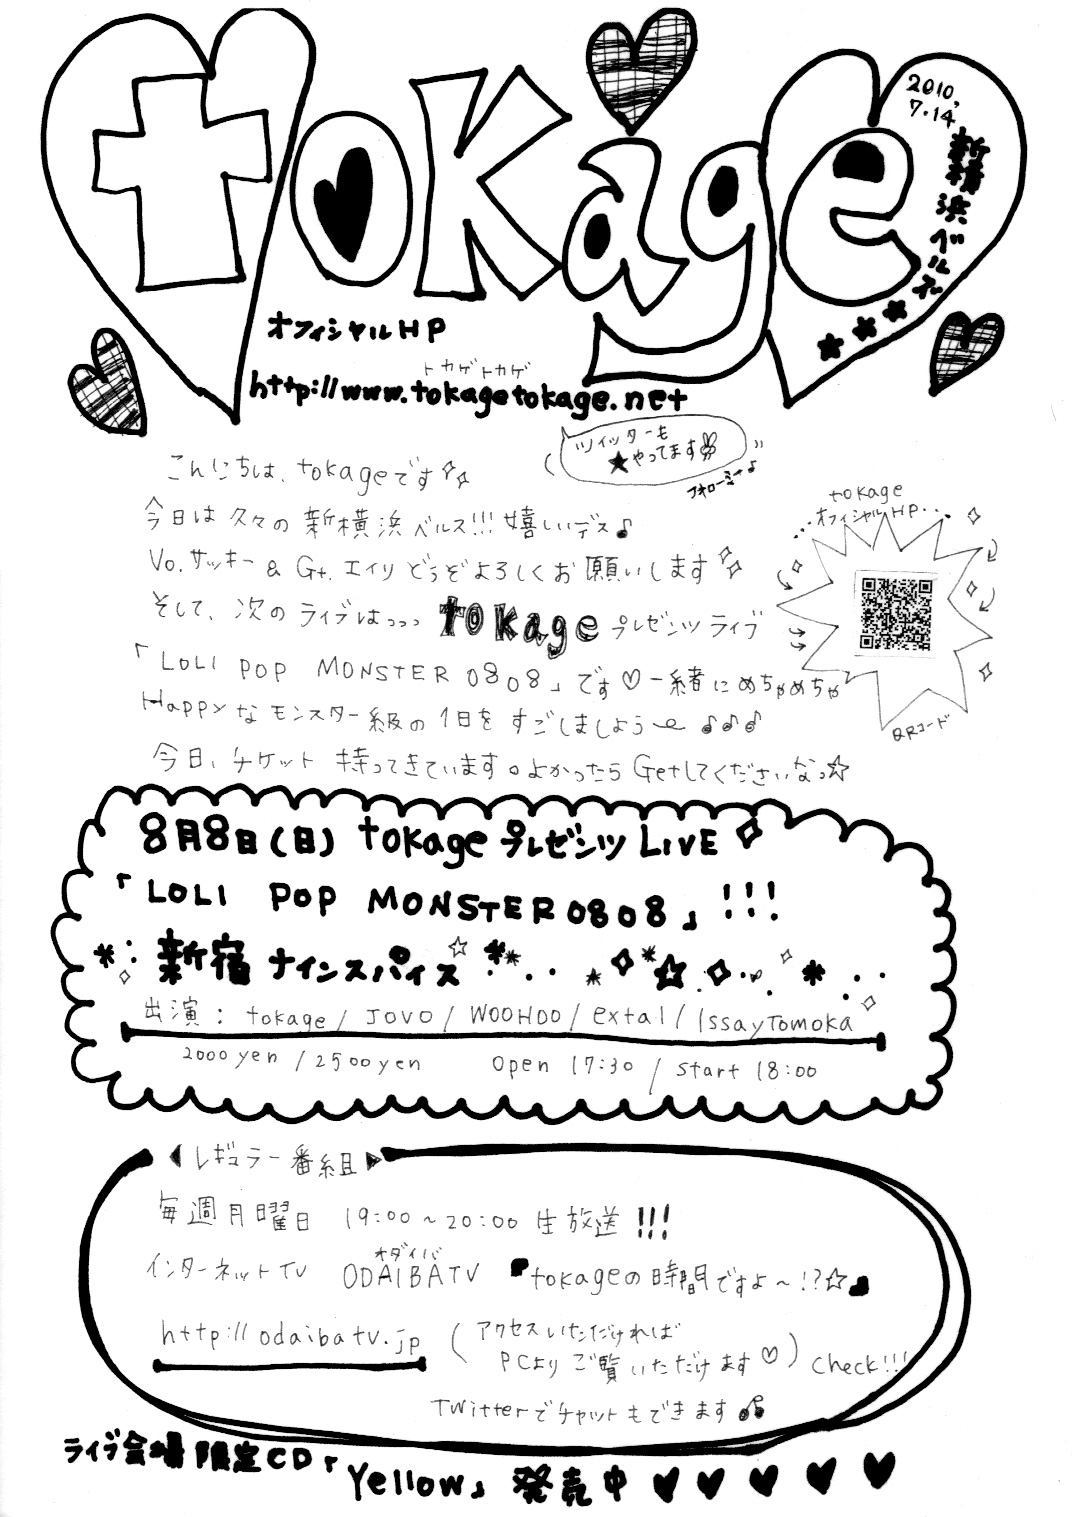 tokage
2010.
7.14
新横浜ベルズ
★★★
オフィシャルHP
トカゲトカゲ
http://www.tokagetokage.net
ツイッターも
★やってます
フォローミー♪
こんにちは、tokageです
今日は久々の新横浜ベルズ!!!嬉しいデス♪
Vo.サッキー & Gt.エイリ どうぞよろしくお願いします
そして、次のライブはっっっ tokage プレゼンツ ライブ
「LOLI POP MONSTER 0808」です♡一緒にめちゃめちゃ
Happyなモンスター級の1日をすごしましょう〜♪♪♪
今日、チケット持ってきています。よかったらGetしてくださいなっ☆
tokage
...オフィシャルHP...
QRコード
8月8日(日) tokage プレゼンツ LIVE
「LOLI POP MONSTER 0808」!!!
新宿ナインスパイス☆
出演: tokage / JOVO / WOOHOO / extal / IssayTomoka
2000yen / 2500yen Open 17:30 / Start 18:00
◀レギュラー番組▶
毎週月曜日 19:00〜20:00 生放送!!!
オダイバ
インターネットTV ODAIBATV 『tokageの時間ですよ〜!?☆』
http://odaibatv.jp (アクセスいただければ
PCよりご覧いただけます♡) check!!!
Twitterでチャットもできます♪
ライブ会場限定CD「Yellow」発売中 ♥♥♥♥♥